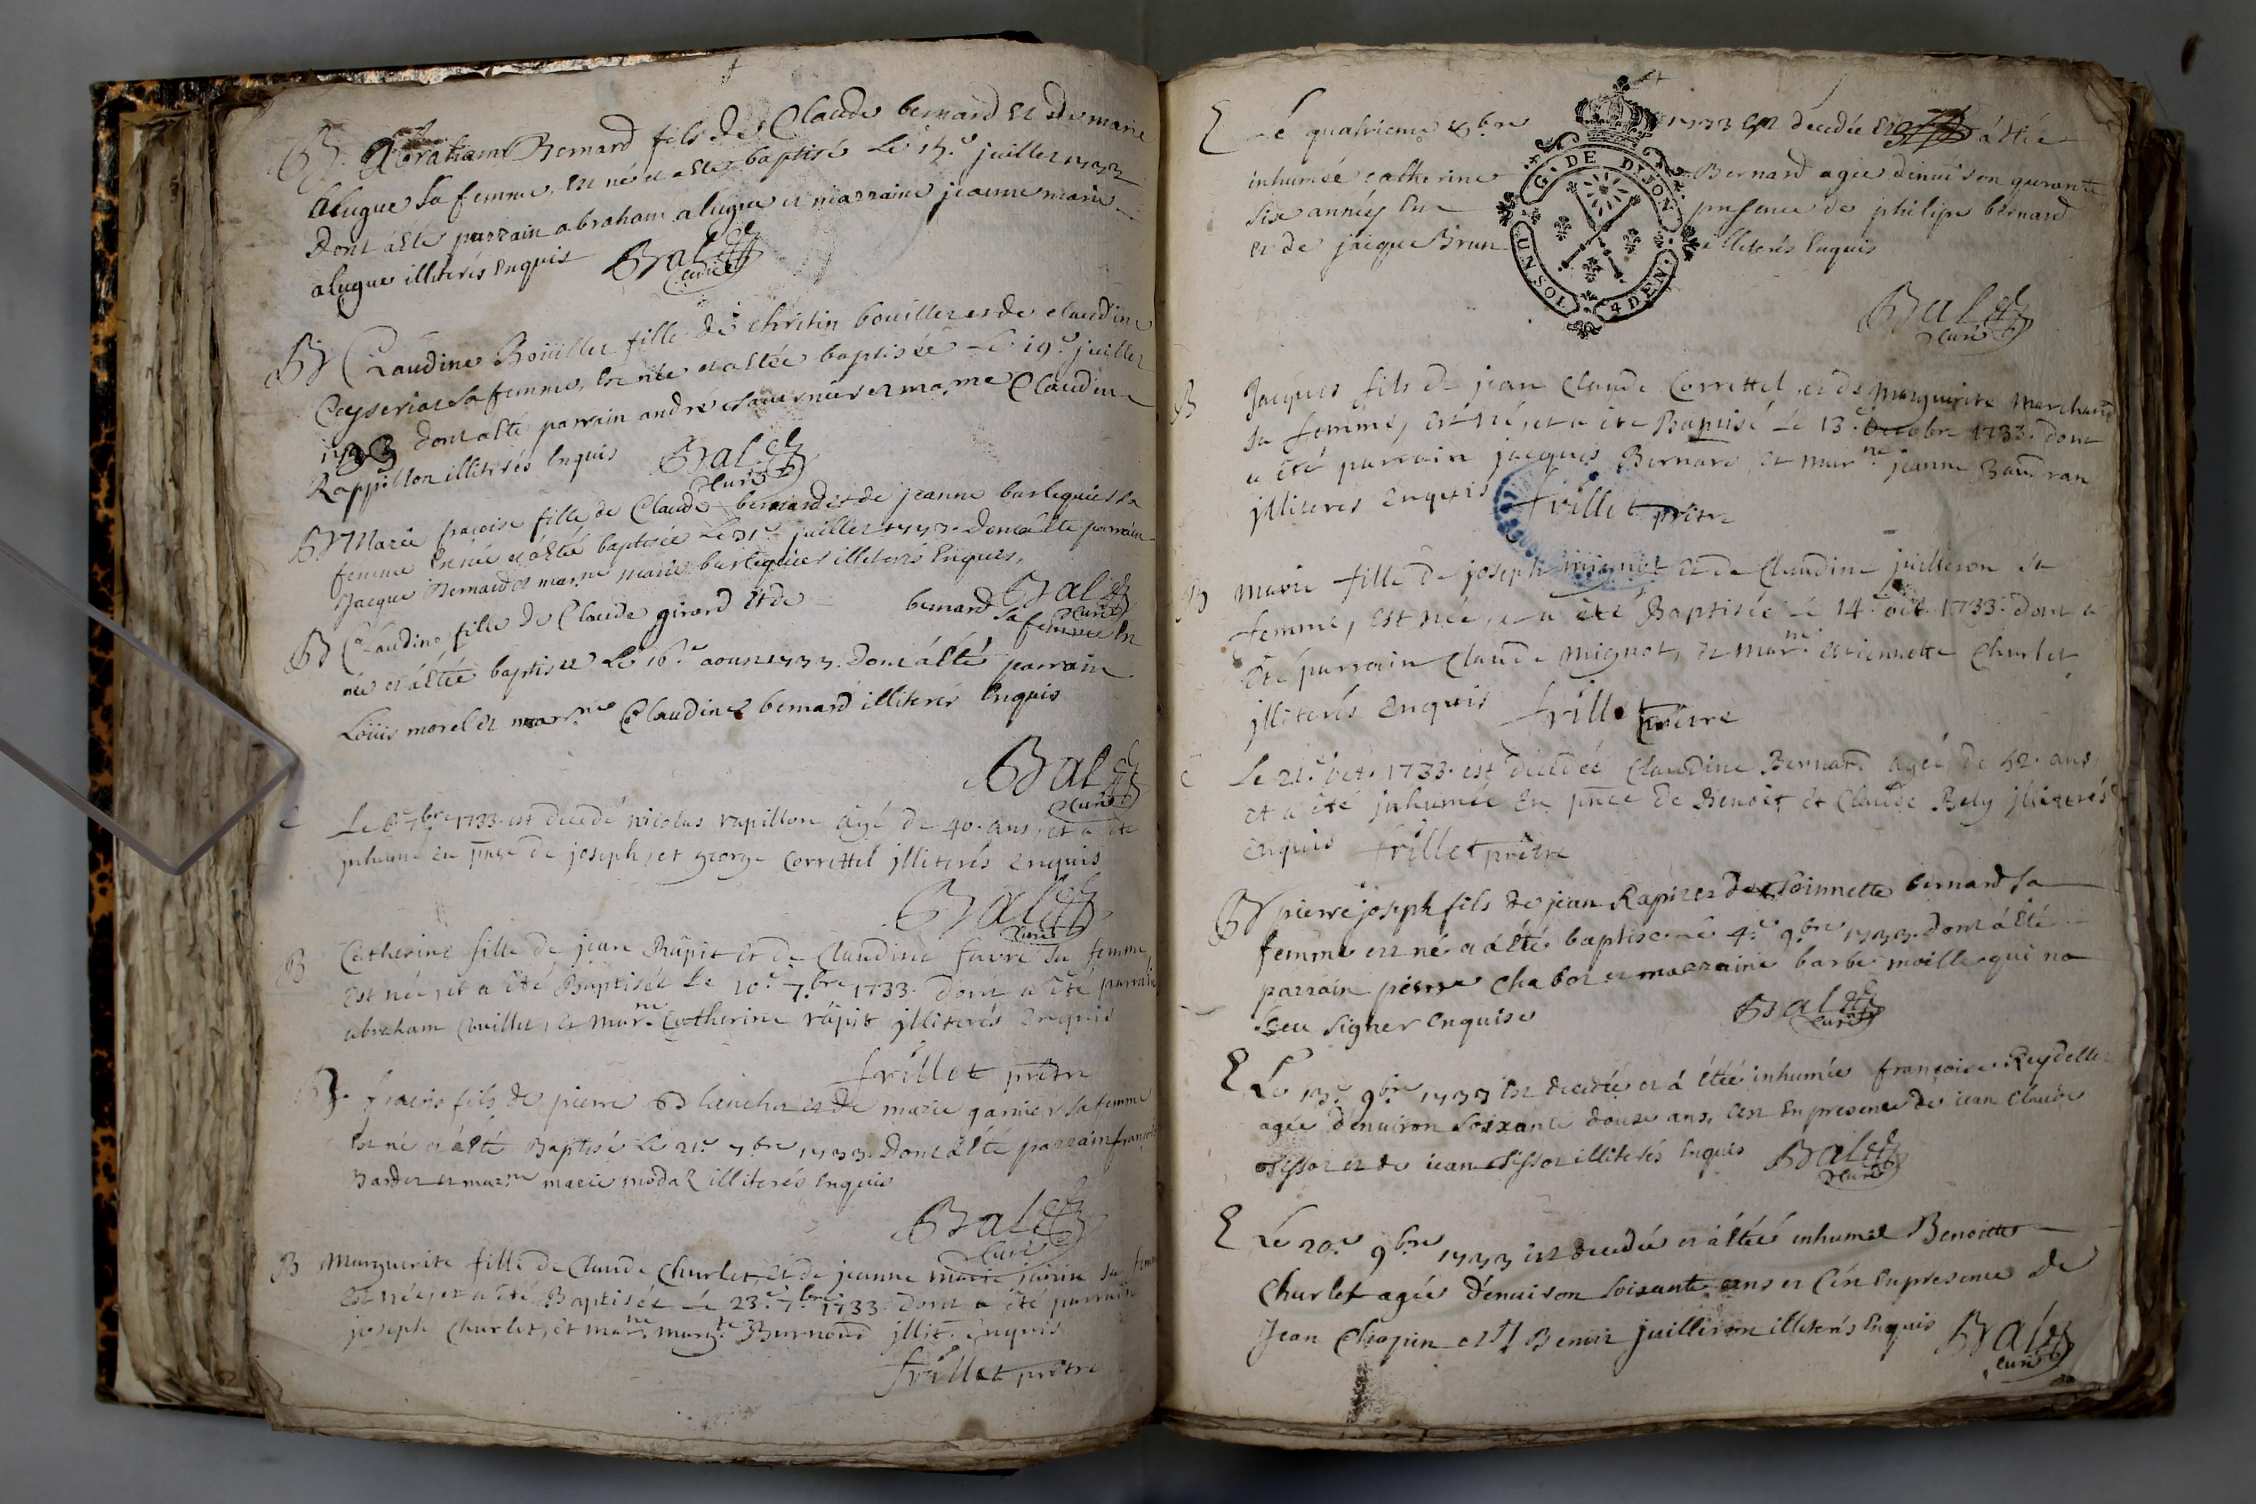 B. Abraham Bernard fils de Claude bernard et de marie
alugue sa femme, est né et a esté baptisé le 15.e juillet 1733
Dont a esté parrain abraham alugue et marraine jeanne marie
alugue illiterés enquis Balet
curé
B Claudine Bouillet fille de chritin bouillet et de claudine
Ceyseriat sa femme, est née et a estée baptisée le 19.e juillet
1733 dont a esté parrain andre et ma.rne Claudine
Rappillon illiterés enquis Balet
curé
B Marie fraçoise fille de Claude bernard et de jeanne burlequier sa
femme est née et a esté baptisée le 31.e juillet 1733. Dont a esté parrain
Jacque Bernard et mar.ne marie burlequier illiterés enquis,
Balet
curé
B Claudine fille de Claude girard et de bernard sa femme est
née et a estée baptisée le 16.e aoust 1733. dont a esté parrain
Louis morel et marr.ne Claudine bernard illiterés enquis
Balet
curé
Le 7.bre 1733 est decedé nicolas rapillon agé de 40. ans, et a été
inhumé en pnce de joseph, et george Correttel illiterés enquis
Balet
curé
B Catherine fille de jean Rapit et de Claudine favre sa femme,
est née, et a été Baptisée le 10.e 7.bre 1733. dont a été parrain
abraham et mar.ne Catherine rapit illiterés enquis
frillet prêtre
B. fils de pierre et de marie garnier sa femme
est né et a esté Baptisé le 21.e 7.bre 1733. Dont a esté parrain françois
Bardet et mar.ne marie illiterés enquis
Balet
curé
B Marguerite fille de Claude Churlet, et de jeanne marie sa femme
est née, et a été Baptisée le 23.e 7.bre 1733 dont a été parrain
joseph Churlet, et mar.ne marg.te Burnoud illit. enquis
frillet prêtre
E Le quatrieme 8.bre 1733 est decedée et a estée
inhumée catherine Bernard agée denuiron quarante
six années en presence de philipe bernard
et de jacque Brun illiterés enquis
G. DE DYJON
UN SOL 4 DEN.
Balet
curé
B Jacques fils de jean Claude Correttel, et de Marguerite Marchand
sa femme, est né, et a été Baptisé le 13.e Octobre 1733. dont
a été parrain jacques Bernard, et mar.ne jeanne Baudran
illiteres enquis frillet prêtre
B Marie fille de joseph mignot et de Claudine juilleron sa
femme, est née, et a été Baptisée le 14.e oct. 1733. dont a
été parrain Claude mignot, et mar.ne estiennette Churlet
illiterés enquis frillet prêtre
Le 21.e oct. 1733. est decedée Claudine Bernard agée de 42. ans,
et a été inhumée en pnce de Benoit et Claude Bely illiterés
enquis frillet prêtre
B pierre joseph fils de jean Rapit et de bernard sa
femme est né et a été baptisé le 4.e 9.bre 1733. dont a esté
parrain pierre chabot et marraine barbe moille qui na
sceu signer enquise Balet
curé
E Le 13.e 9.bre 1733 est decedée et a estée inhumée françoise Reydellet
agée denuiron soixante douze ans, cest en presence de jean Claude
et de jean illiterés enquis Balet
curé
E Le 20.e 9.bre 1733 est decedée et a estée inhumée Benoitte
Churlet agée denuiron soixante ans et cest en presence de
Jean Chapin et Benoit juilleron illiterés enquis Balet
curé